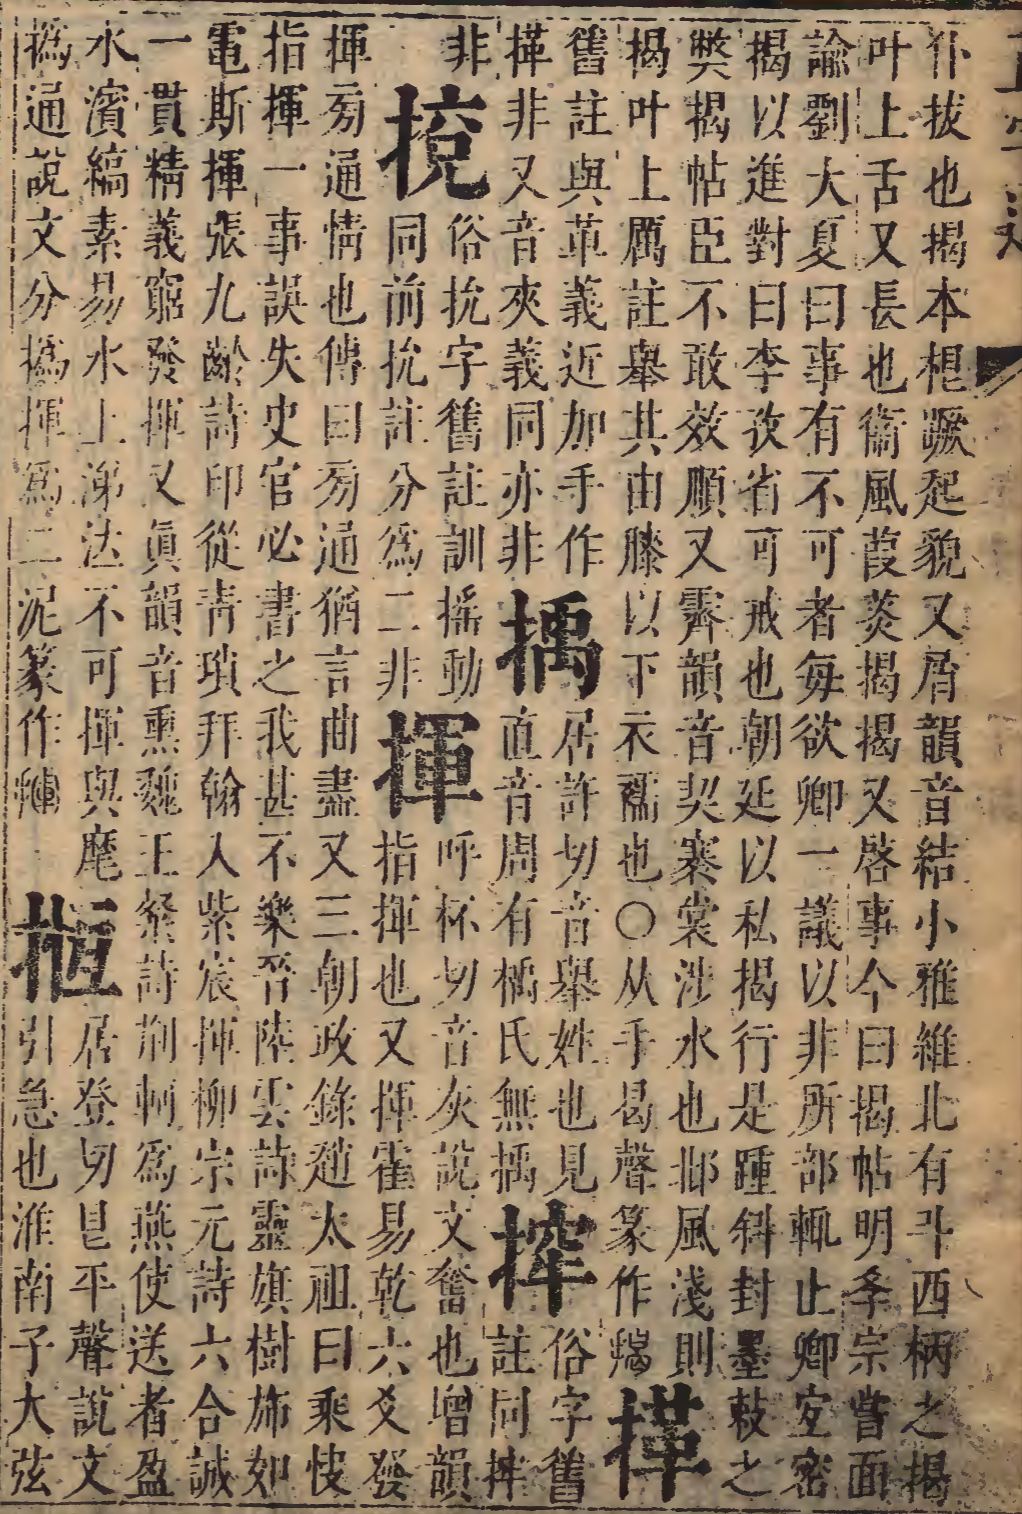 仆拔也揭本根蹶起貌又屑韻音結小雅維北有斗西柄之揭
叶上舌又長也衞風葭菼揭揭又啓事今曰揭帖明孝宗嘗面
諭劉大夏曰事有不可者每欲卿一議以非所部輒止卿宜密
揭以進對曰李孜省可戒也朝廷以私揭行是踵斜封墨敕之
弊揭帖臣不敢效順又霽韻音契褰裳涉水也邶風淺則
揭叶上厲註舉其由膝以下衣襦也○从手曷聲篆作
舊註與革義近加手作
非又音夾義同亦非
居許切音舉姓也見
直音周有楀氏無
俗字舊
註同
非
俗抗字舊註訓搖動
同前抗註分爲二非
揮
呼杯切音灰說文奮也增韻
指揮也又揮霍易乾六爻發
揮旁通情也傳曰旁通猶言曲盡又三朝政錄趙太祖曰乘快
指揮一事誤失史官必書之我甚不樂晉陸雲詩靈旗樹旆如
電斯揮張九齡詩印從靑瑣拜翰入紫宸揮柳宗元詩六合誠
一貫精義窮發揮又眞韻音熏魏王粲詩荆軻爲燕使送者盈
水濱縞素易水上涕泣不可揮與麾
撝通說文分撝揮爲二泥篆作
搄
居登切𠃵平聲說文
引急也淮南子大弦